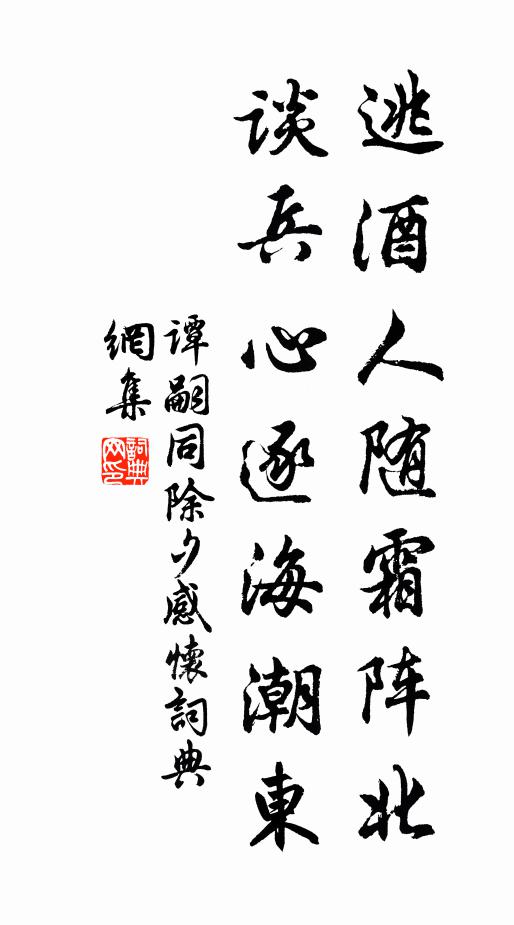 逃酒人随霜阵北
谈兵心逐海潮東
谭嗣同除夕感懷詞典
網集
詞典網印